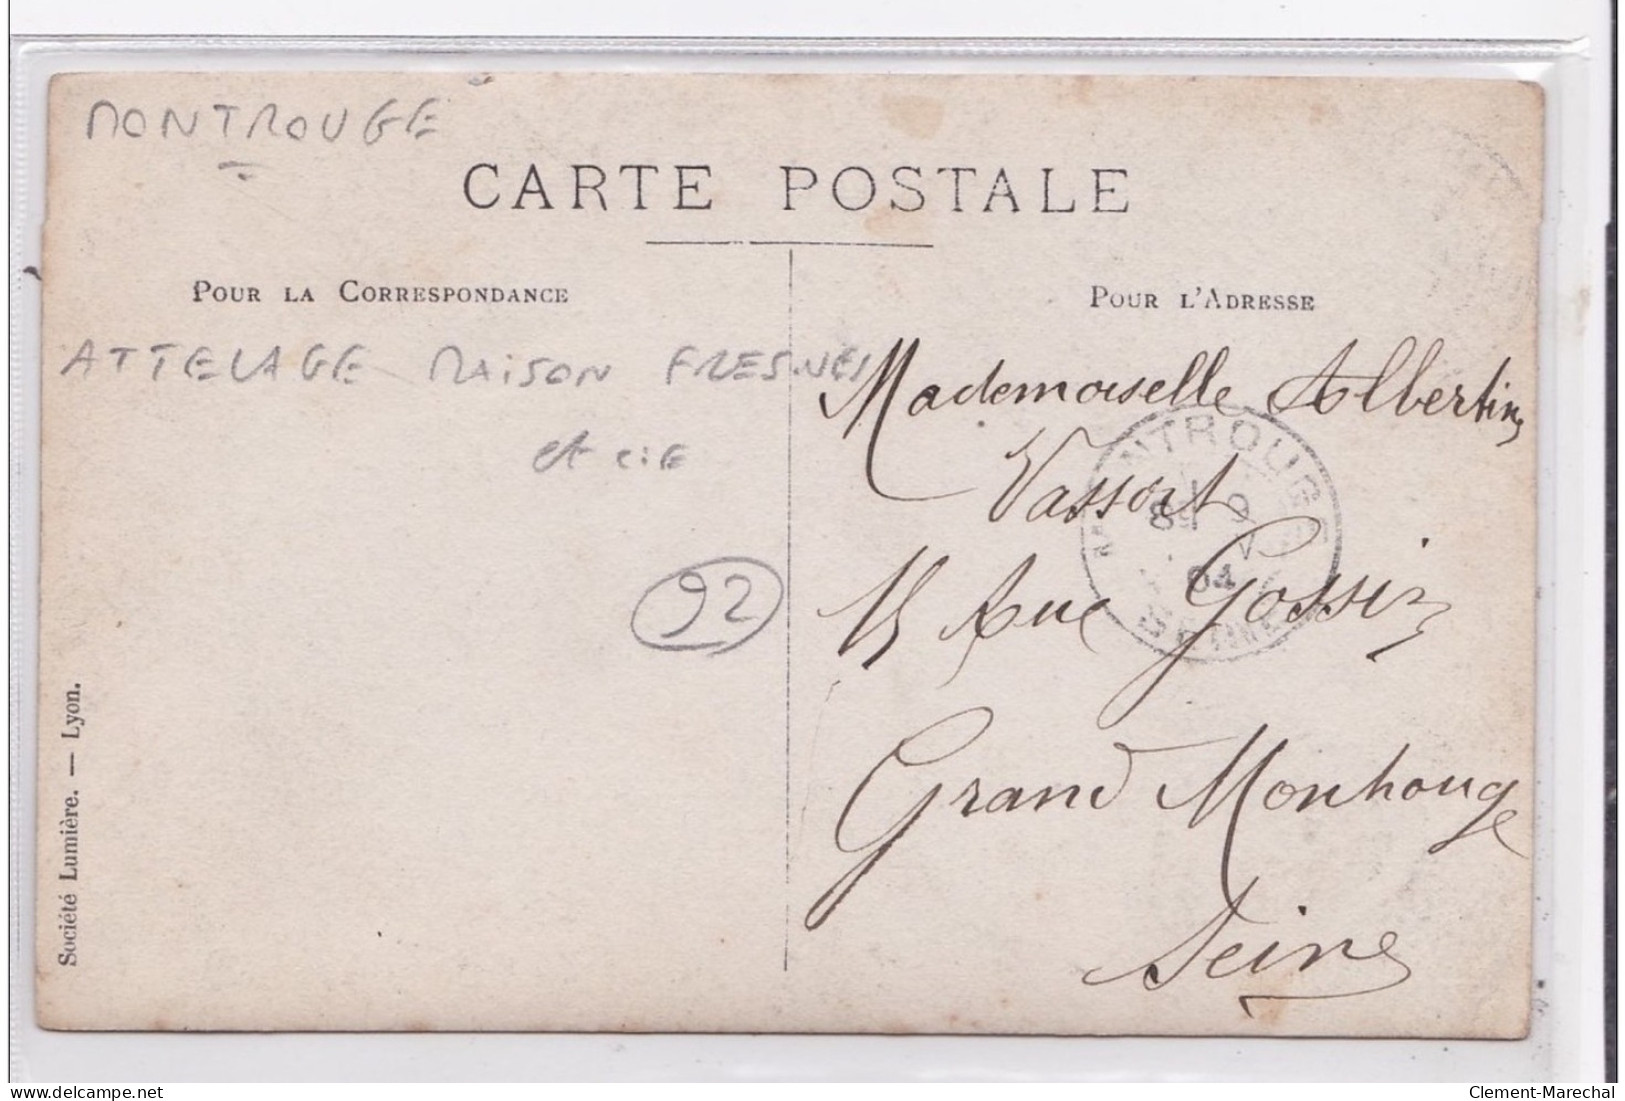 MONTROUGE
CARTE POSTALE
POUR LA CORRESPONDANCE
POUR L'ADRESSE
ATTELAGE MAISON FRESNES
et cie
92
Mademoiselle Albertine
Vassort
15 Rue Gossin
Grand Montrouge
Seine
MONTROUGE
9
V
04
SEINE
Société Lumière. — Lyon.
delcampe.net
Clement-Marechal